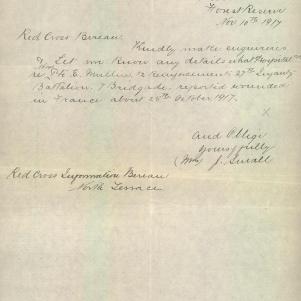 Forest Reserve
Nov 10th 1917
Red Cross Bureau.
Kindly make enquiries
& Let me know any details what Hospital
re Pte E. Mullins 2 Reinforcements 27th Infantry
Battalion. 7 Bridgade, reported wounded
in France about 28th October 1917.
X
And Oblige
Yours fully
(Mrs J. Small
Red Cross Information Bureau
North Terrace